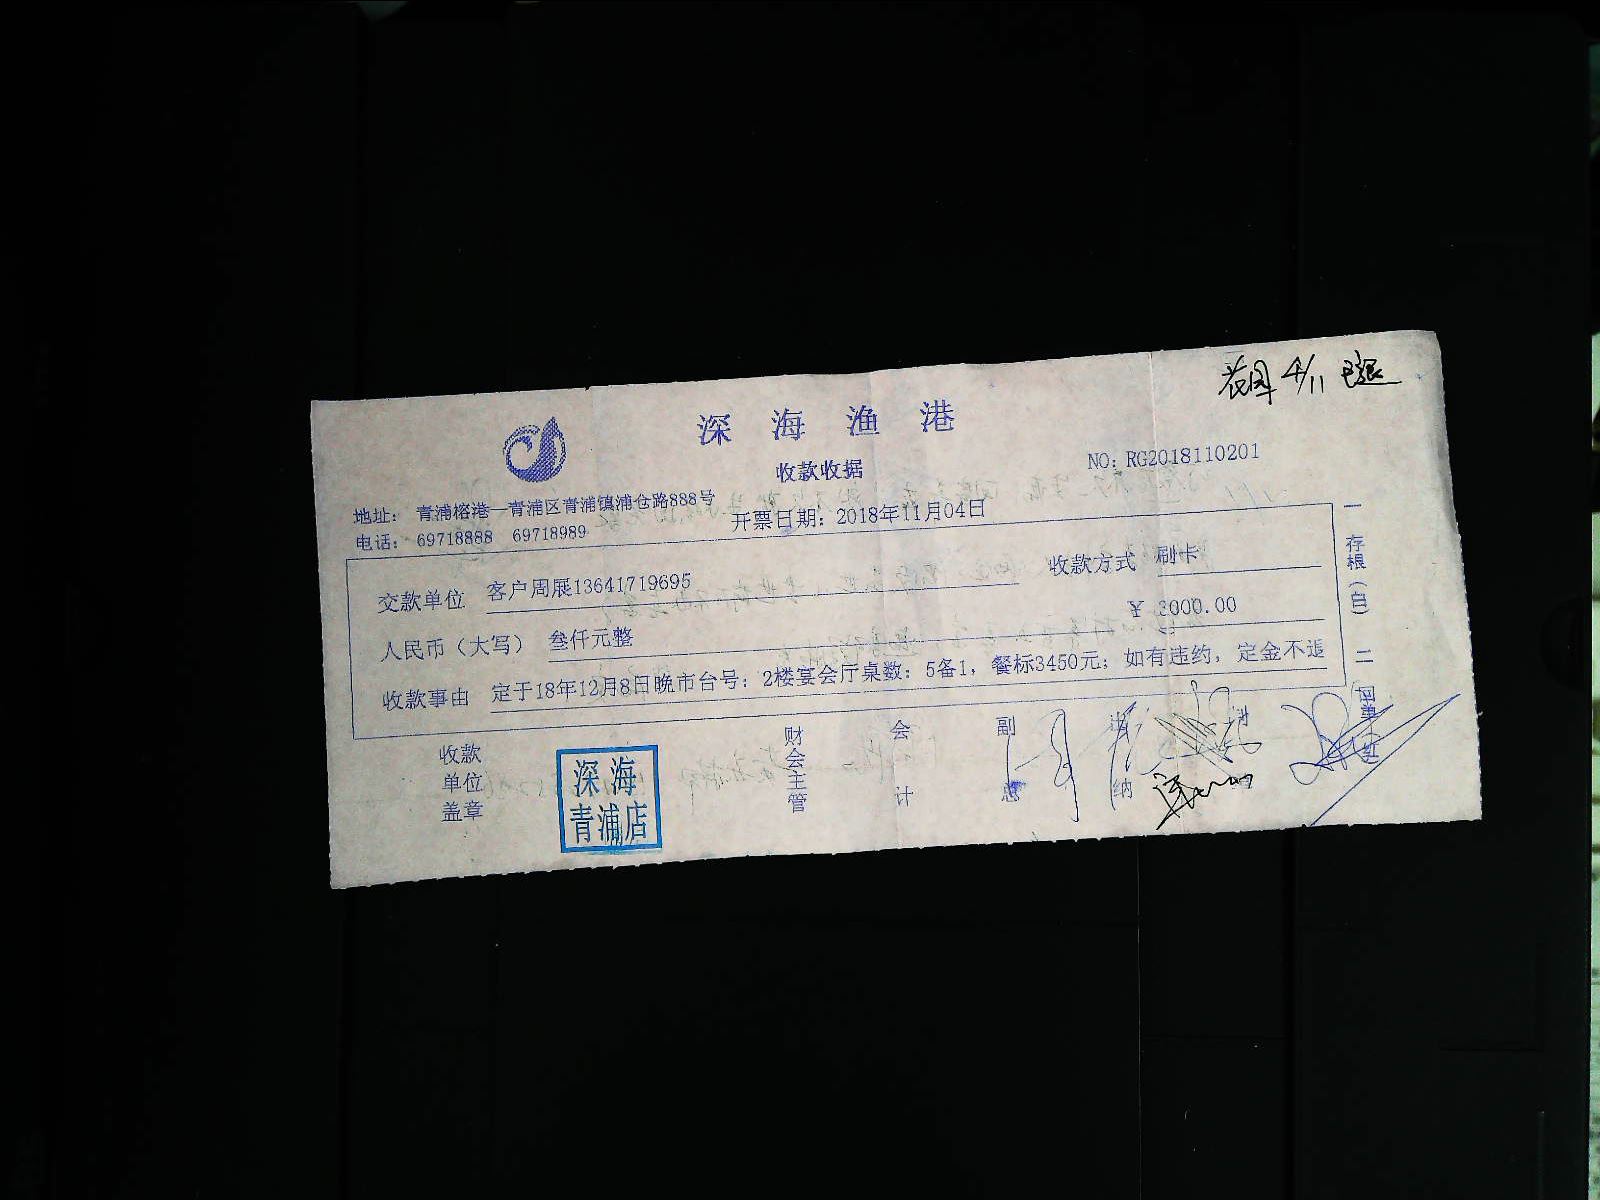 花园 4/11 已张
深海渔港
收款收据
NO: RG2018110201
地址: 青浦榕港—青浦区青浦镇浦仓路888号
电话: 69718888 69718989
开票日期: 2018年11月04日
交款单位 客户周展13641719695
收款方式 刷卡
人民币（大写） 叁仟元整
¥ 3000.00
收款事由 定于18年12月8日晚市台号; 2楼宴会厅桌数: 5备1, 餐标3450元; 如有违约, 定金不退
一存根(白) 二
收款单位盖章
深海
青浦店
财会主管
会计
副总
出纳